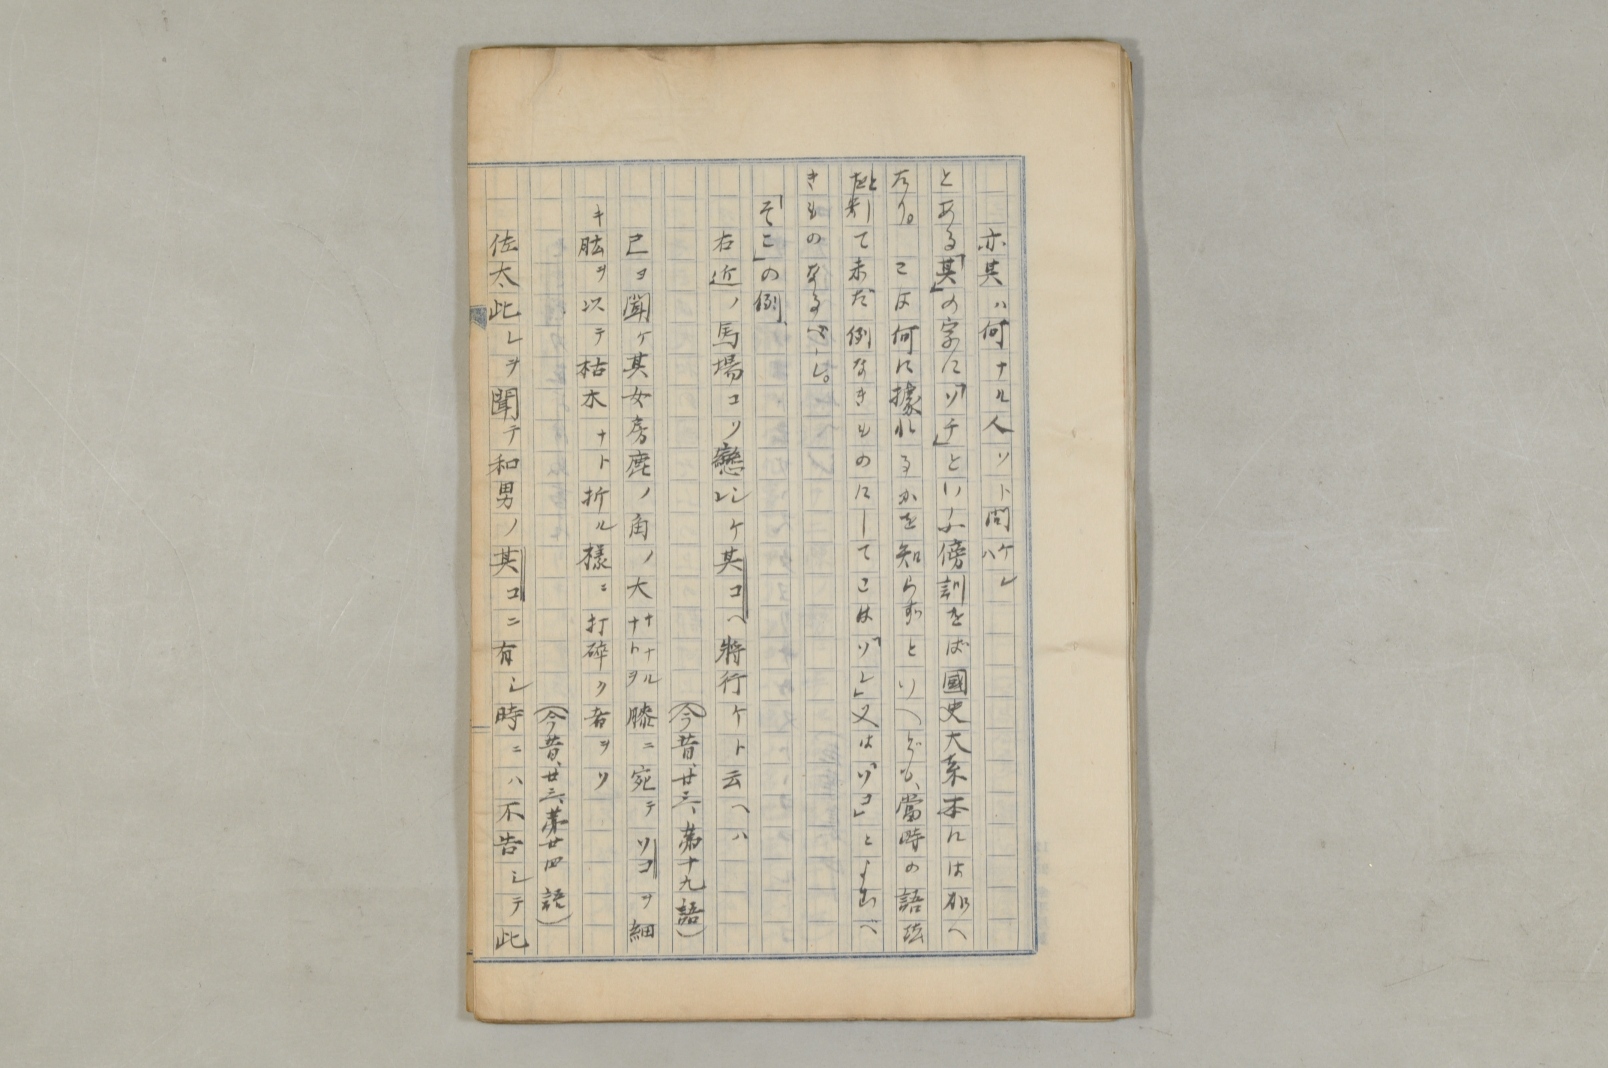 亦其ハ何ナル人ソト問ケレハ
とある「其」の字に「ソチ」といふ傍訓をば國史大系本には加へ
たり。こは何に據れるかを知らずといへども、當時の語法
として未だ例なきものにしてこは「ソレ」又は「ソコ」とよむべ
きものなるべし。
「そこ」の例、
右近ノ馬場コソ戀シケレ其コヘ將行ケト云ヘハ
(今昔、廿三、第十九語)
己ヨ聞ケ其女房鹿ノ角ノ大ナルナトヲ膝ニ宛テソコヲ細
キ肱ヲ以テ枯木ナト折ル樣ニ打碎ク者ヲソ
(今昔、廿三、第廿四語)
佐太此レヲ聞テ和男ノ其コニ有シ時ニハ不告シテ此